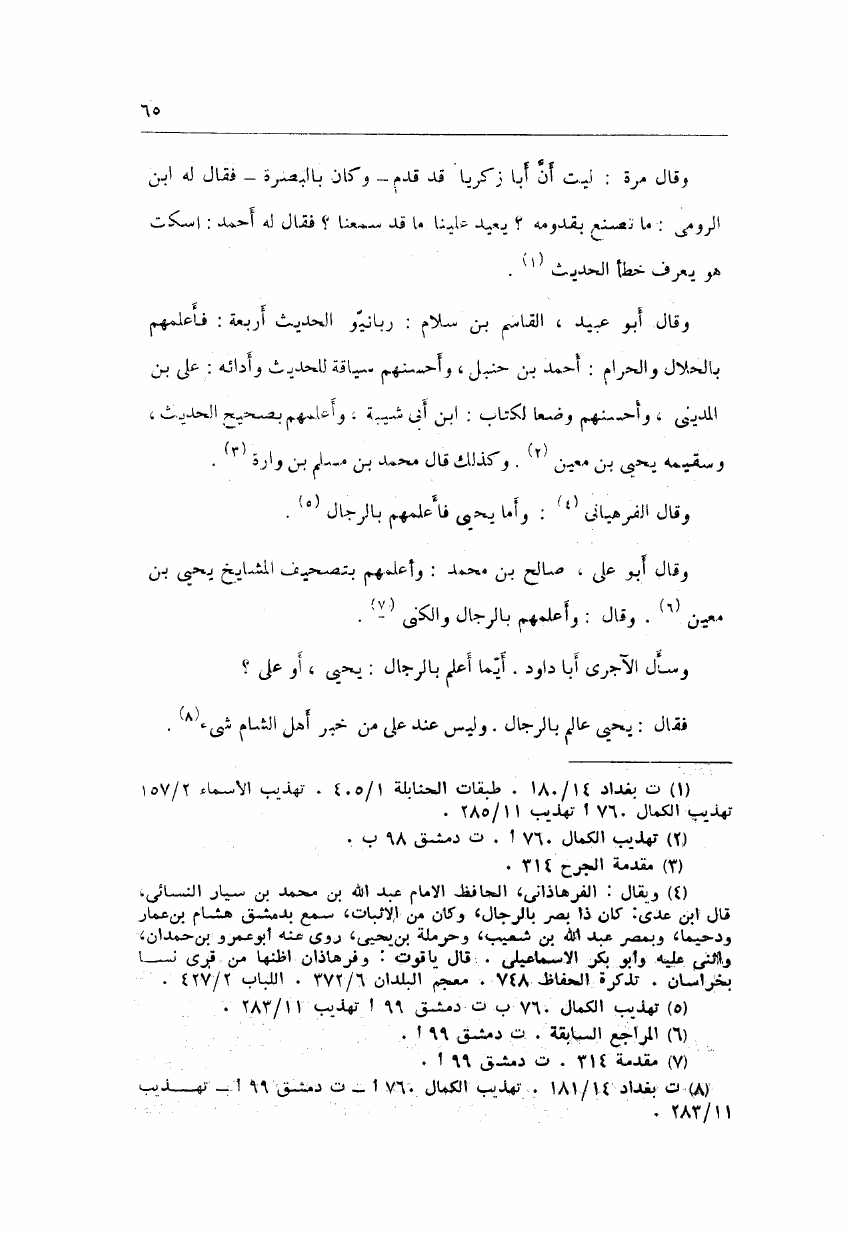 ٦٥
وقال مرة : ليت أنَّ أبا زكريا قد قدم ـ وكان بالبصرة ـ فقال له ابن
الرومى : ما تصنع بقدومه ؟ يعيد علينا ما قد سمعنا ؟ فقال له أحمد : اسكت
هو يعرف خطأ الحديث (١) .
وقال أبو عبيد ، القاسم بن سلام : ربانيّو الحديث أربعة : فأعلمهم
بالحلال والحرام : أحمد بن حنبل ، وأحسنهم سياقة للحديث وأدائه : على بن
المدينى ، وأحسنهم وضعا لكتاب : ابن أبى شيبة ، وأعلمهم بصحيح الحديث ،
وسقيمه يحيى بن معين (٢) . وكذلك قال محمد بن مسلم بن وارة (٣) .
وقال الفرهيانى (٤) : وأما يحيى فأعلمهم بالرجال (٥) .
وقال أبو على ، صالح بن محمد : وأعلمهم بتصحيف المشايخ يحيى بن
معين (٦) . وقال : وأعلمهم بالرجال والكنى (٧) .
وسأل الآجرى أبا داود . أيّما أعلم بالرجال : يحيى ، أو على ؟
فقال : يحيى عالم بالرجال . وليس عند على من خبر أهل الشام شىء (٨) .
(١) ت بغداد ١٨٠/١٤ . طبقات الحنابلة ٤٠٥/١ . تهذيب الاسماء ١٥٧/٢
تهذيب الكمال ٧٦٠ أ تهذيب ٢٨٥/١١ .
(٢) تهذيب الكمال ٧٦٠ أ . ت دمشق ٩٨ ب .
(٣) مقدمة الجرح ٣١٤ .
(٤) ويقال : الفرهاذانى، الحافظ الامام عبد الله بن محمد بن سيار النسائى،
قال ابن عدى: كان ذا بصر بالرجال، وكان من الاثبات، سمع بدمشق هشام بن عمار
ودحيما، وبمصر عبد الله بن شعيب، وحرملة بن يحيى، روى عنه أبو عمرو بن حمدان،
واثنى عليه وأبو بكر الاسماعيلى . قال ياقوت : وفرهاذان اظنها من قرى نسا
بخراسان . تذكرة الحفاظ ٧٤٨ . معجم البلدان ٣٧٢/٦ . اللباب ٤٢٧/٢ .
(٥) تهذيب الكمال ٧٦٠ ب ت دمشق ٩٩ أ تهذيب ٢٨٣/١١ .
(٦) المراجع السابقة . ت دمشق ٩٩ أ .
(٧) مقدمة ٣١٤ . ت دمشق ٩٩ أ .
(٨) ت بغداد ١٨١/١٤ . تهذيب الكمال ٧٦٠ أ ـ ت دمشق ٩٩ أ ـ تهذيب
٢٨٣/١١ .